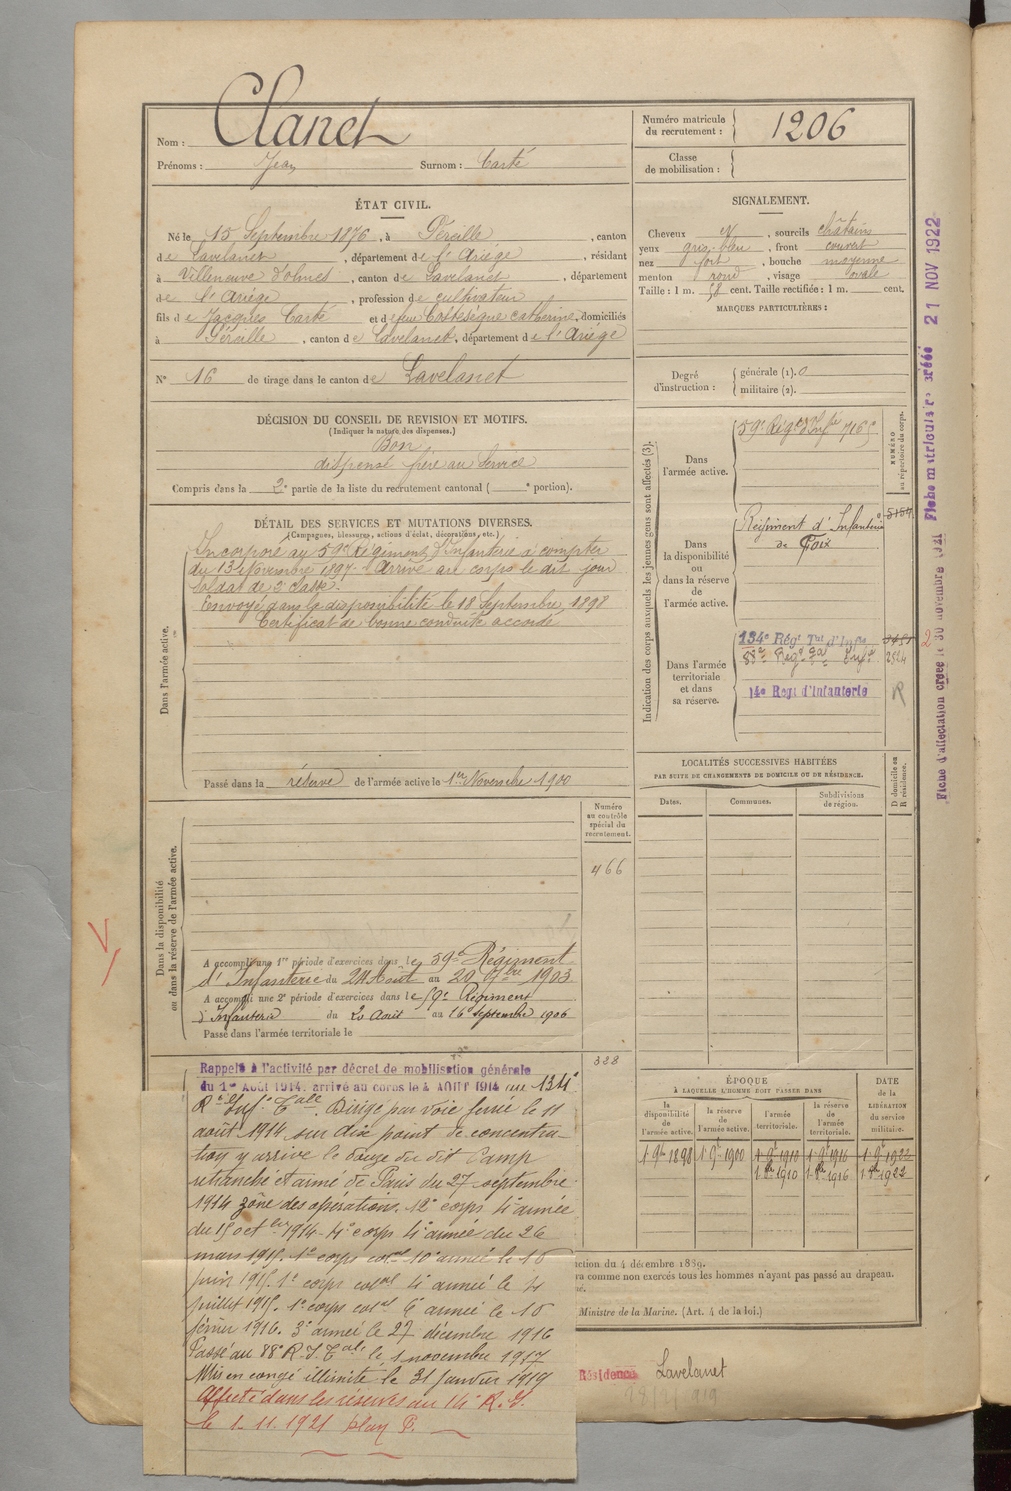 Nom : Clanet
Prénoms : Jean Surnom : Carté
ÉTAT CIVIL.
Né le 15 Septembre 1876, à Péreille, canton
de Lavelanet, département de l'Ariége, résidant
à Villeneuve d'Olmes, canton de Lavelanet, département
de l'Ariége, profession de cultivateur
fils de Jacques Carté et de feu Costesèque Catherine, domiciliés
à Péreille, canton de Lavelanet, département de l'Ariége
N° 16 de tirage dans le canton de Lavelanet
DÉCISION DU CONSEIL DE REVISION ET MOTIFS.
(Indiquer la nature des dispenses.)
Bon
dispensé frère au service
Compris dans la 2e partie de la liste du recrutement cantonal ( e portion).
DÉTAIL DES SERVICES ET MUTATIONS DIVERSES.
(Campagnes, blessures, actions d'éclat, décorations, etc.)
Dans l'armée active.
Incorporé au 59e Régiment d'Infanterie à compter
du 13 Novembre 1897. Arrivé au corps le dit jour
soldat de 2e classe.
Envoyé dans la disponibilité le 18 Septembre 1898
Certificat de bonne conduite accordé
Passé dans la réserve de l'armée active le 1er Novembre 1900
Dans la disponibilité
ou dans la réserve de l'armée active.
Numéro
au contrôle
spécial du
recrutement.
466
A accompli une 1re période d'exercices dans le 59e Régiment
d'Infanterie du 24 Août au 20 7bre 1903
A accompli une 2e période d'exercices dans le 59e Régiment
d'Infanterie du 20 Août au 16 Septembre 1906
Passé dans l'armée territoriale le
328
Rappelé à l'activité par décret de mobilisation générale
du 1er Août 1914. arrivé au corps le 4 AOUT 1914 au 134e
Rt Inf. Tale. Dirigé par voie ferrée le 11
août 1914 sur dixe point de concentra-
tion y arrive le douze du dit Camp
retranché et armé de Paris du 27 septembre
1914 zône des opérations. 12e corps 4e armée
du 15 octbre 1914 - 4e corps 4e armée du 26
mars 1915. 1e corps colal 10e armée le 16
juin 1915. 1e corps colal 4e armée le 4
juillet 1915. 1e corps colal 6e armée le 16
février 1916. 3e armée le 27 décembre 1916
Passé au 88e R.I. Tale le 1 novembre 1917
Mis en congé illimité le 31 janvier 1919
Affecté dans les réserves au 14e R.I.
le 1.11.1921 plan P.
Numéro matricule
du recrutement : 1206
Classe
de mobilisation :
SIGNALEMENT.
Cheveux N, sourcils châtains
yeux gris-bleu, front couvert
nez fort, bouche moyenne
menton rond, visage ovale
Taille : 1 m. 58 cent. Taille rectifiée : 1 m. cent.
MARQUES PARTICULIÈRES :
Degré
d'instruction :
générale (1). 0
militaire (2).
Indication des corps auxquels les jeunes gens sont affectés (3).
NUMÉRO
au répertoire du corps.
Dans
l'armée active.
59e Régt d'Infie 7165
Dans
la disponibilité
ou
dans la réserve
de
l'armée active.
Régiment d'Infanterie
de Foix
5154
Dans l'armée
territoriale
et dans
sa réserve.
134e Régt Tal d'Infie
88e Régt Tal Infie 2524
14e Regt d'Infanterie R
2
LOCALITÉS SUCCESSIVES HABITÉES
PAR SUITE DE CHANGEMENTS DE DOMICILE OU DE RÉSIDENCE.
Dates.
Communes.
Subdivisions
de région.
D domicile ou
R résidence.
ÉPOQUE
À LAQUELLE L'HOMME DOIT PASSER DANS
DATE
de la
LIBÉRATION
du service
militaire.
la
disponibilité
de
l'armée active.
la réserve
de
l'armée active.
l'armée
territoriale.
la réserve
de
l'armée
territoriale.
1 9bre 1898 1 9e 1900 1 9e 1910 1 9e 1916 1 9e 1922
1 8bre 1910 1 8bre 1916 1 8bre 1922
ction du 4 décembre 1889.
ra comme non exercés tous les hommes n'ayant pas passé au drapeau.
Ministre de la Marine. (Art. 4 de la loi.)
Résidence Lavelanet
Fiche matriculaire créée 21 NOV 1922
Fiche d'affectation créée le 30 novembre 1921
V